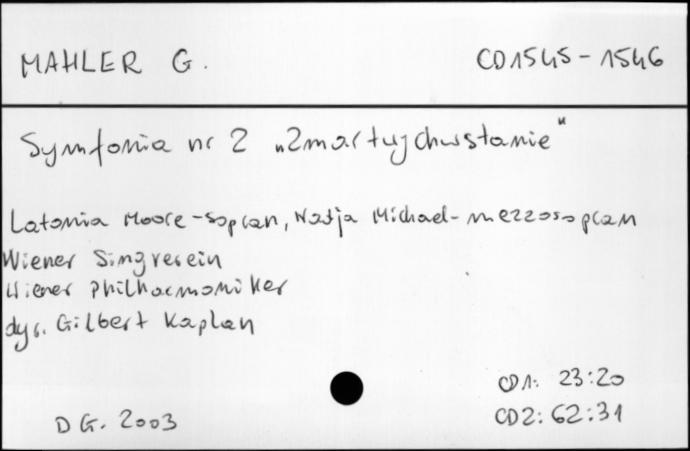 MAHLER G.
CD1545-1546
Symfonia nr 2 „Zmartwychwstanie"
Latonia Moore-sopran, Nadja Michael-mezzosopran
Wiener Singverein
Wiener Philharmoniker
dyr. Gilbert Kaplan
CD1: 23:20
DG. 2003
CD2: 62:31